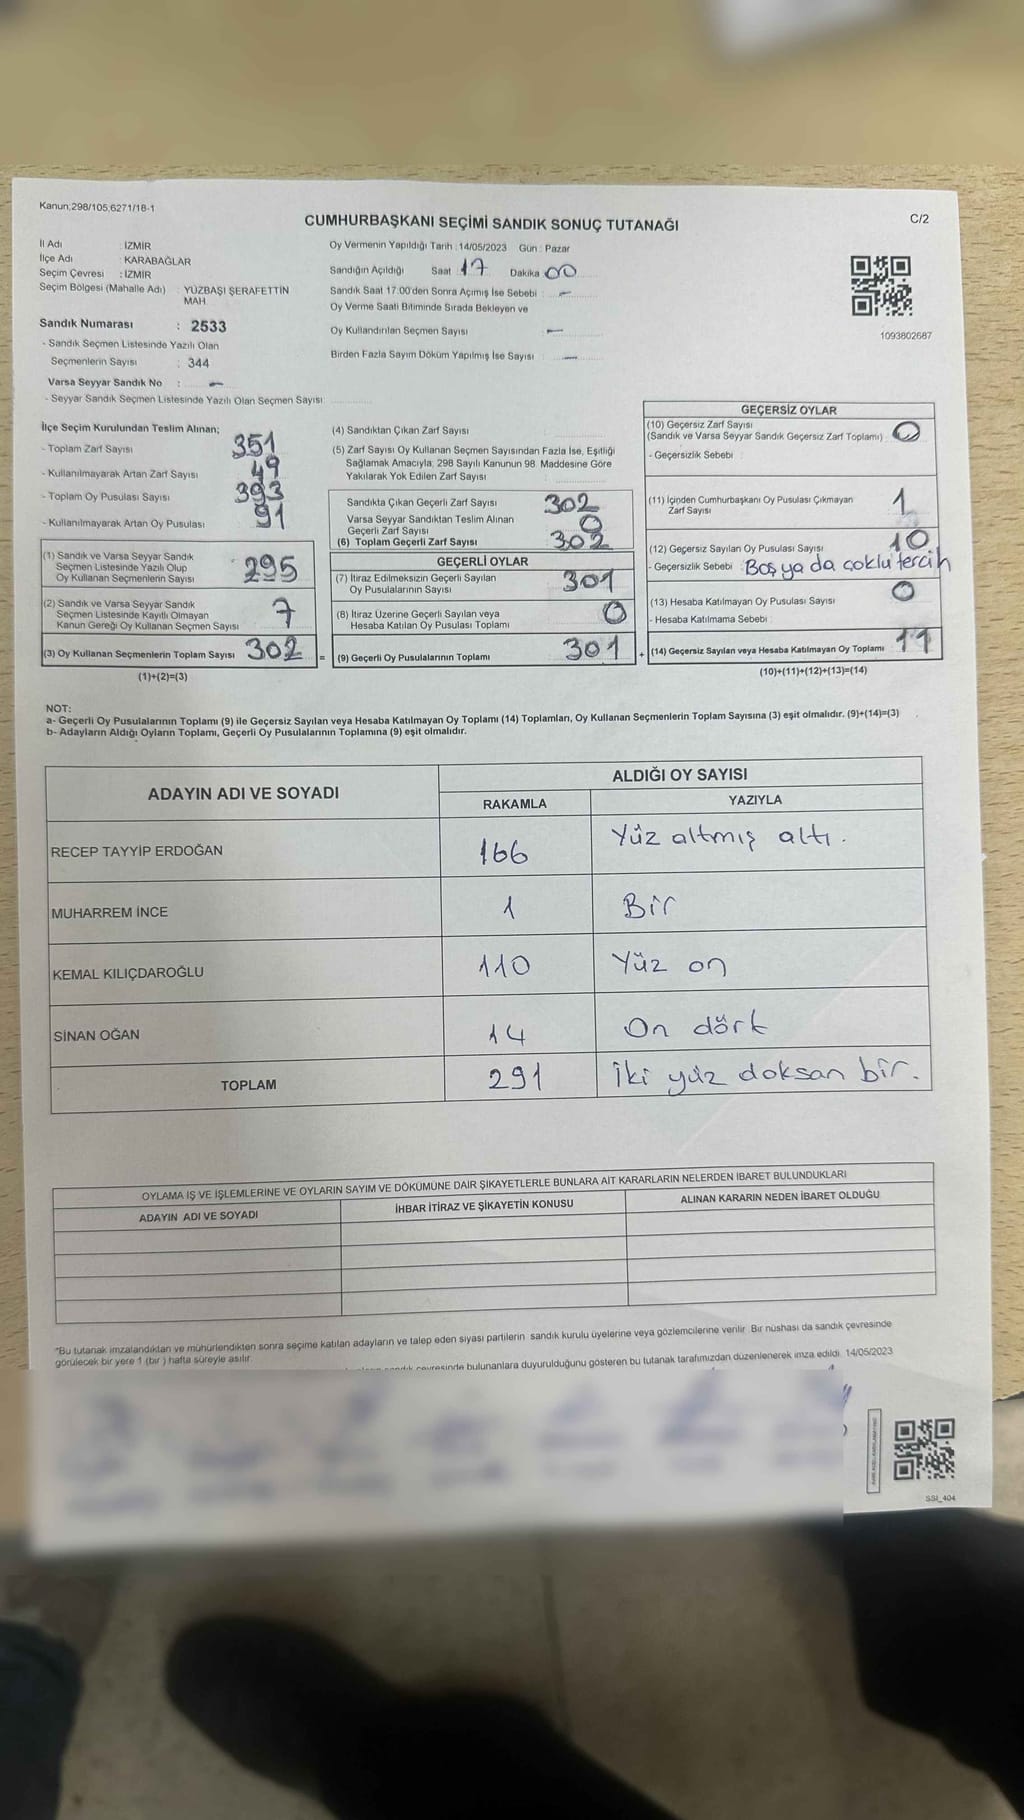 Kanun;298/105;6271/18-1
C/2
CUMHURBAŞKANI SEÇİMİ SANDIK SONUÇ TUTANAĞI
İl Adı : İZMİR
İlçe Adı : KARABAĞLAR
Seçim Çevresi : İZMİR
Seçim Bölgesi (Mahalle Adı) : YÜZBAŞI ŞERAFETTİN MAH.
Sandık Numarası : 2533
- Sandık Seçmen Listesinde Yazılı Olan
Seçmenlerin Sayısı : 344
Varsa Seyyar Sandık No : -
- Seyyar Sandık Seçmen Listesinde Yazılı Olan Seçmen Sayısı
Oy Vermenin Yapıldığı Tarih : 14/05/2023 Gün : Pazar
Sandığın Açıldığı Saat 17 Dakika 00
Sandık Saat 17.00'den Sonra Açımış İse Sebebi : -
Oy Verme Saati Bitiminde Sırada Bekleyen ve
Oy Kullandırılan Seçmen Sayısı -
Birden Fazla Sayım Döküm Yapılmış İse Sayısı -
1093802687
İlçe Seçim Kurulundan Teslim Alınan;
- Toplam Zarf Sayısı 351
- Kullanılmayarak Artan Zarf Sayısı 49
- Toplam Oy Pusulası Sayısı 393
- Kullanılmayarak Artan Oy Pusulası 91
(1) Sandık ve Varsa Seyyar Sandık
Seçmen Listesinde Yazılı Olup
Oy Kullanan Seçmenlerin Sayısı 295
(2) Sandık ve Varsa Seyyar Sandık
Seçmen Listesinde Kayıtlı Olmayan
Kanun Gereği Oy Kullanan Seçmen Sayısı 7
(3) Oy Kullanan Seçmenlerin Toplam Sayısı 302 =
(1)+(2)=(3)
(4) Sandıktan Çıkan Zarf Sayısı
(5) Zarf Sayısı Oy Kullanan Seçmen Sayısından Fazla İse, Eşitliği
Sağlamak Amacıyla; 298 Sayılı Kanunun 98. Maddesine Göre
Yakılarak Yok Edilen Zarf Sayısı
Sandıkta Çıkan Geçerli Zarf Sayısı 302
Varsa Seyyar Sandıktan Teslim Alınan
Geçerli Zarf Sayısı 0
(6) Toplam Geçerli Zarf Sayısı 302
GEÇERLİ OYLAR
(7) İtiraz Edilmeksizin Geçerli Sayılan
Oy Pusulalarının Sayısı 301
(8) İtiraz Üzerine Geçerli Sayılan veya
Hesaba Katılan Oy Pusulası Toplamı 0
(9) Geçerli Oy Pusulalarının Toplamı 301 +
GEÇERSİZ OYLAR
(10) Geçersiz Zarf Sayısı
(Sandık ve Varsa Seyyar Sandık Geçersiz Zarf Toplamı) 0
- Geçersizlik Sebebi :
(11) İçinden Cumhurbaşkanı Oy Pusulası Çıkmayan
Zarf Sayısı 1
(12) Geçersiz Sayılan Oy Pusulası Sayısı 10
- Geçersizlik Sebebi : Boş ya da çoklu tercih
(13) Hesaba Katılmayan Oy Pusulası Sayısı 0
- Hesaba Katılmama Sebebi :
(14) Geçersiz Sayılan veya Hesaba Katılmayan Oy Toplamı 11
(10)+(11)+(12)+(13)=(14)
NOT:
a- Geçerli Oy Pusulalarının Toplamı (9) ile Geçersiz Sayılan veya Hesaba Katılmayan Oy Toplamı (14) Toplamları, Oy Kullanan Seçmenlerin Toplam Sayısına (3) eşit olmalıdır. (9)+(14)=(3)
b- Adayların Aldığı Oyların Toplamı, Geçerli Oy Pusulalarının Toplamına (9) eşit olmalıdır.
ADAYIN ADI VE SOYADI ALDIĞI OY SAYISI
RAKAMLA YAZIYLA
RECEP TAYYİP ERDOĞAN 166 Yüz altmış altı.
MUHARREM İNCE 1 Bir
KEMAL KILIÇDAROĞLU 110 Yüz on
SİNAN OĞAN 14 On dört
TOPLAM 291 İki yüz doksan bir.
OYLAMA İŞ VE İŞLEMLERİNE VE OYLARIN SAYIM VE DÖKÜMÜNE DAİR ŞİKAYETLERLE BUNLARA AİT KARARLARIN NELERDEN İBARET BULUNDUKLARI
ADAYIN ADI VE SOYADI İHBAR İTİRAZ VE ŞİKAYETİN KONUSU ALINAN KARARIN NEDEN İBARET OLDUĞU
*Bu tutanak imzalandıktan ve mühürlendikten sonra seçime katılan adayların ve talep eden siyasi partilerin sandık kurulu üyelerine veya gözlemcilerine verilir. Bir nüshası da sandık çevresinde
görülecek bir yere 1 (bir ) hafta süreyle asılır.
sandık çevresinde bulunanlara duyurulduğunu gösteren bu tutanak tarafımızdan düzenlenerek imza edildi. 14/05/2023
SSI_404